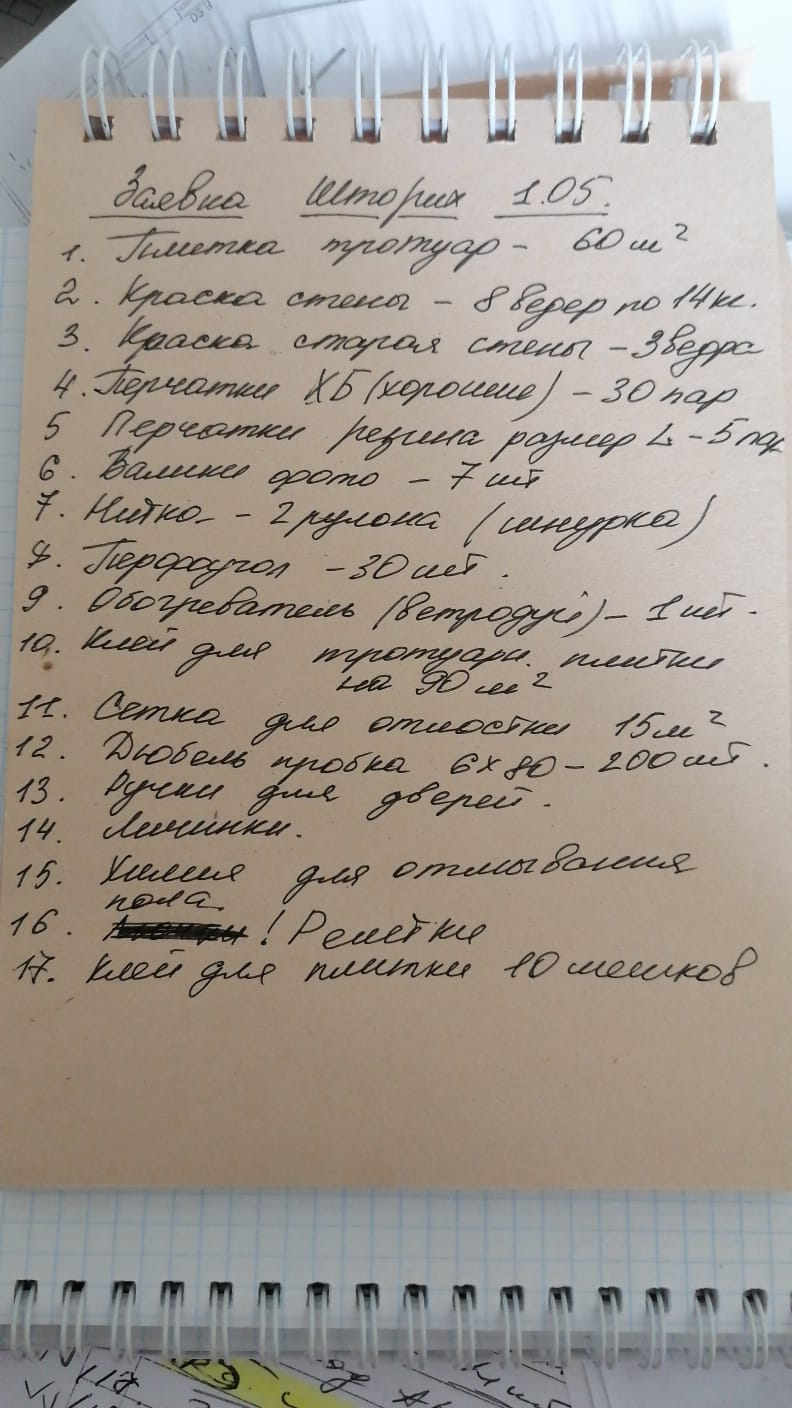 Заявка Шторих 1.05.
1. Плитка тротуар - 60 м²
2. Краска стены - 8 ведер по 14 кг.
3. Краска старая стены - 3 ведра
4. Перчатки ХБ (хорошие) - 30 пар
5 Перчатки резина размер L - 5 пар
6. Валики фото - 7 шт
7. Нитка - 2 рулона (шнурка)
8. Перфоугол - 30 шт.
9. Обогреватель (ветродуй) - 1 шт.
10. Клей для тротуарн. плитки
на 90 м²
11. Сетка для отмостки 15 м²
12. Дюбель пробка 6х80 - 200 шт.
13. Ручки для дверей.
14. Личинки.
15. Химия для отмывания
пола.
16. ! Решетки
17. Клей для плитки 10 мешков